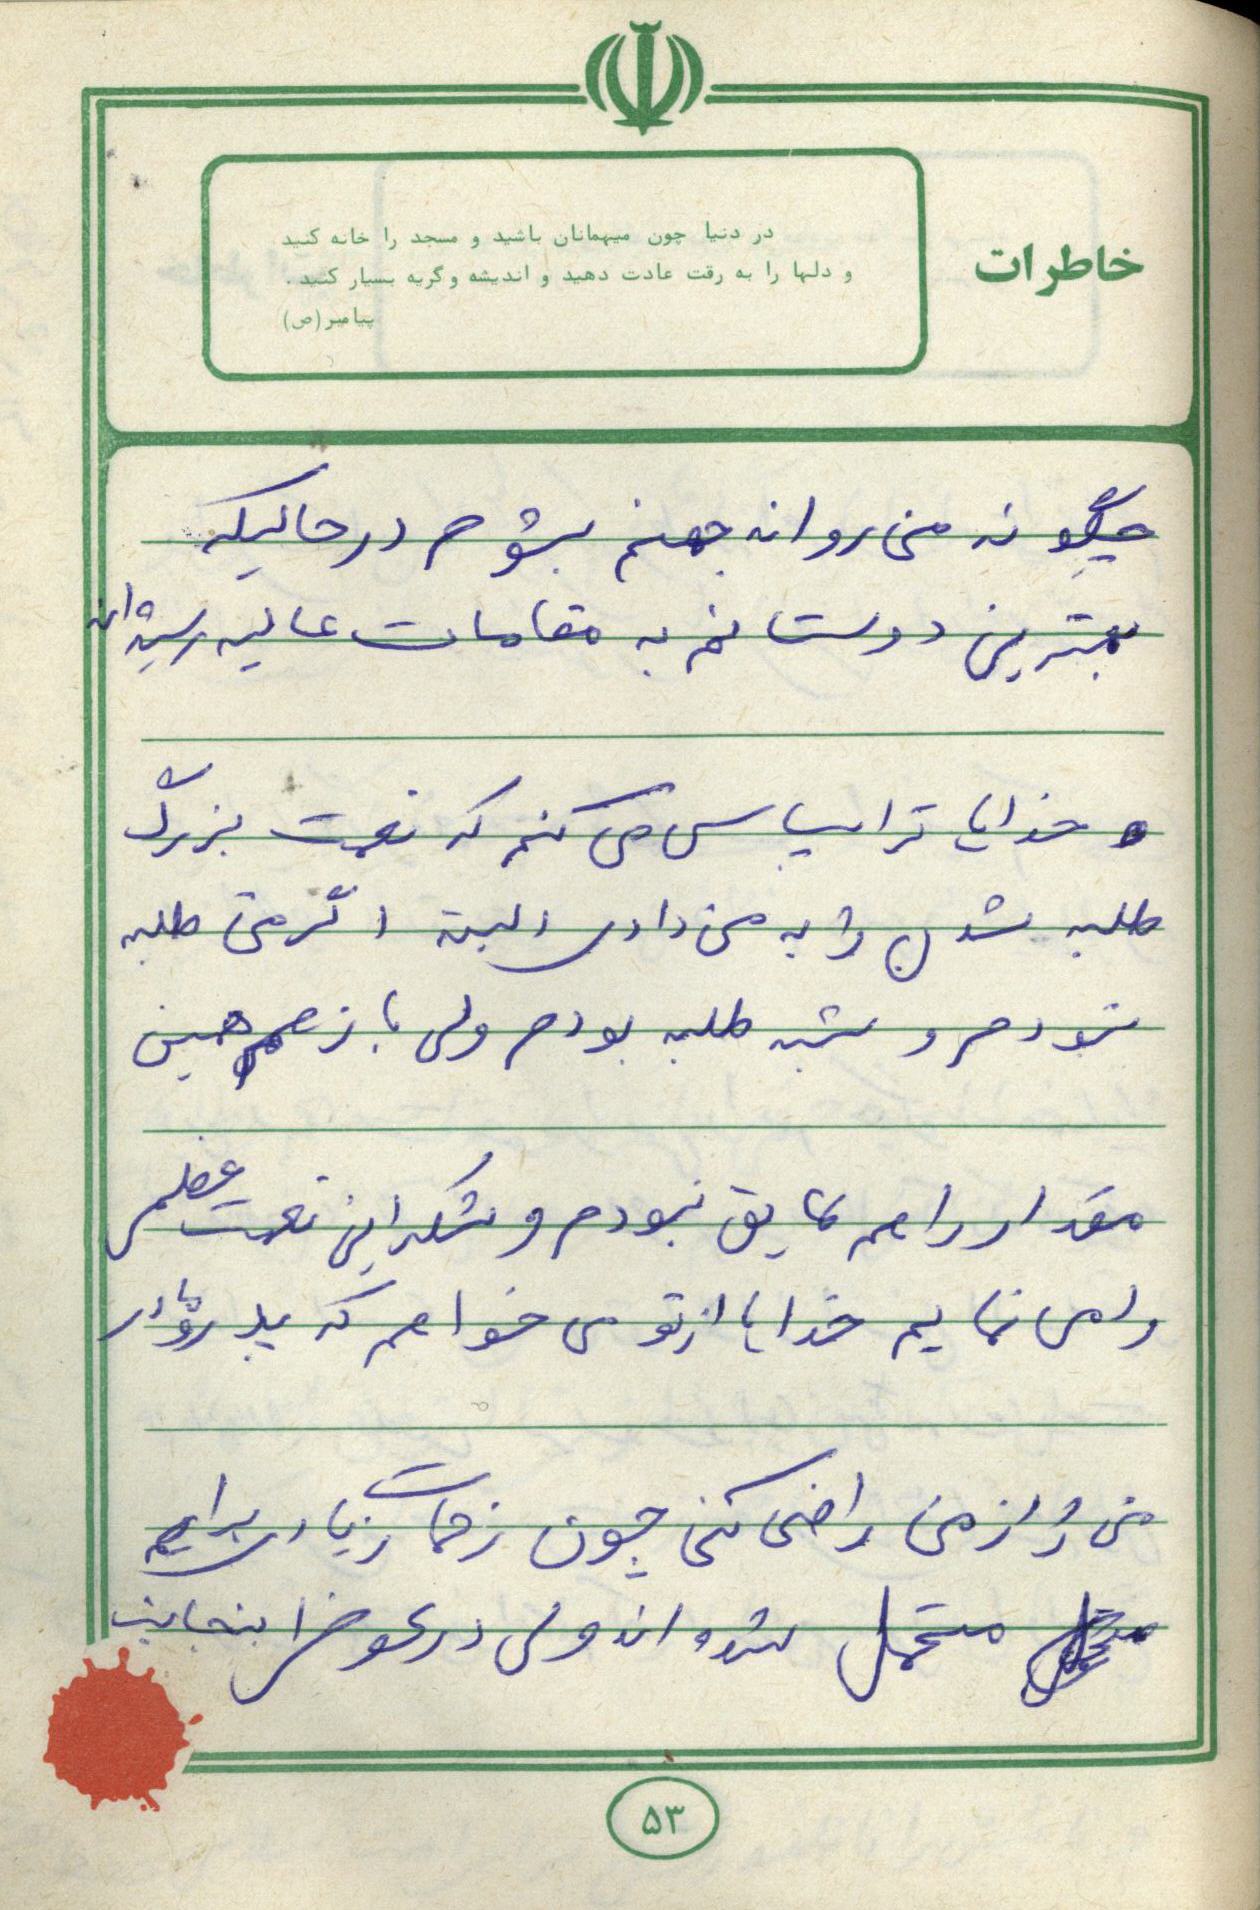 خاطرات
در دنیا چون میهمانان باشید و مسجد را خانه کنید
و دلها را به رقت عادت دهید و اندیشه و گریه بسیار کنید .
پیامبر (ص)
چگونه من روانه جهنم بشوم در حالیکه
بهترین دوستانم به مقامات عالیه رسیده‌اند
خدایا ترا سپاس می کنم که نعمت بزرگ
طلبه شدن را به من دادی البته اگر من طلبه
نبودم و شبه طلبه بودم ولی باز هم همین
مقدار را هم لایق نبودم و شکر این نعمت عظمی
را می نمایم خدایا از تو می خواهم که پدر و مادر
من را از من راضی کنی چون زحمات زیادی برایم
متحمل شده اند ولی در عوض اینجانب
۵۳